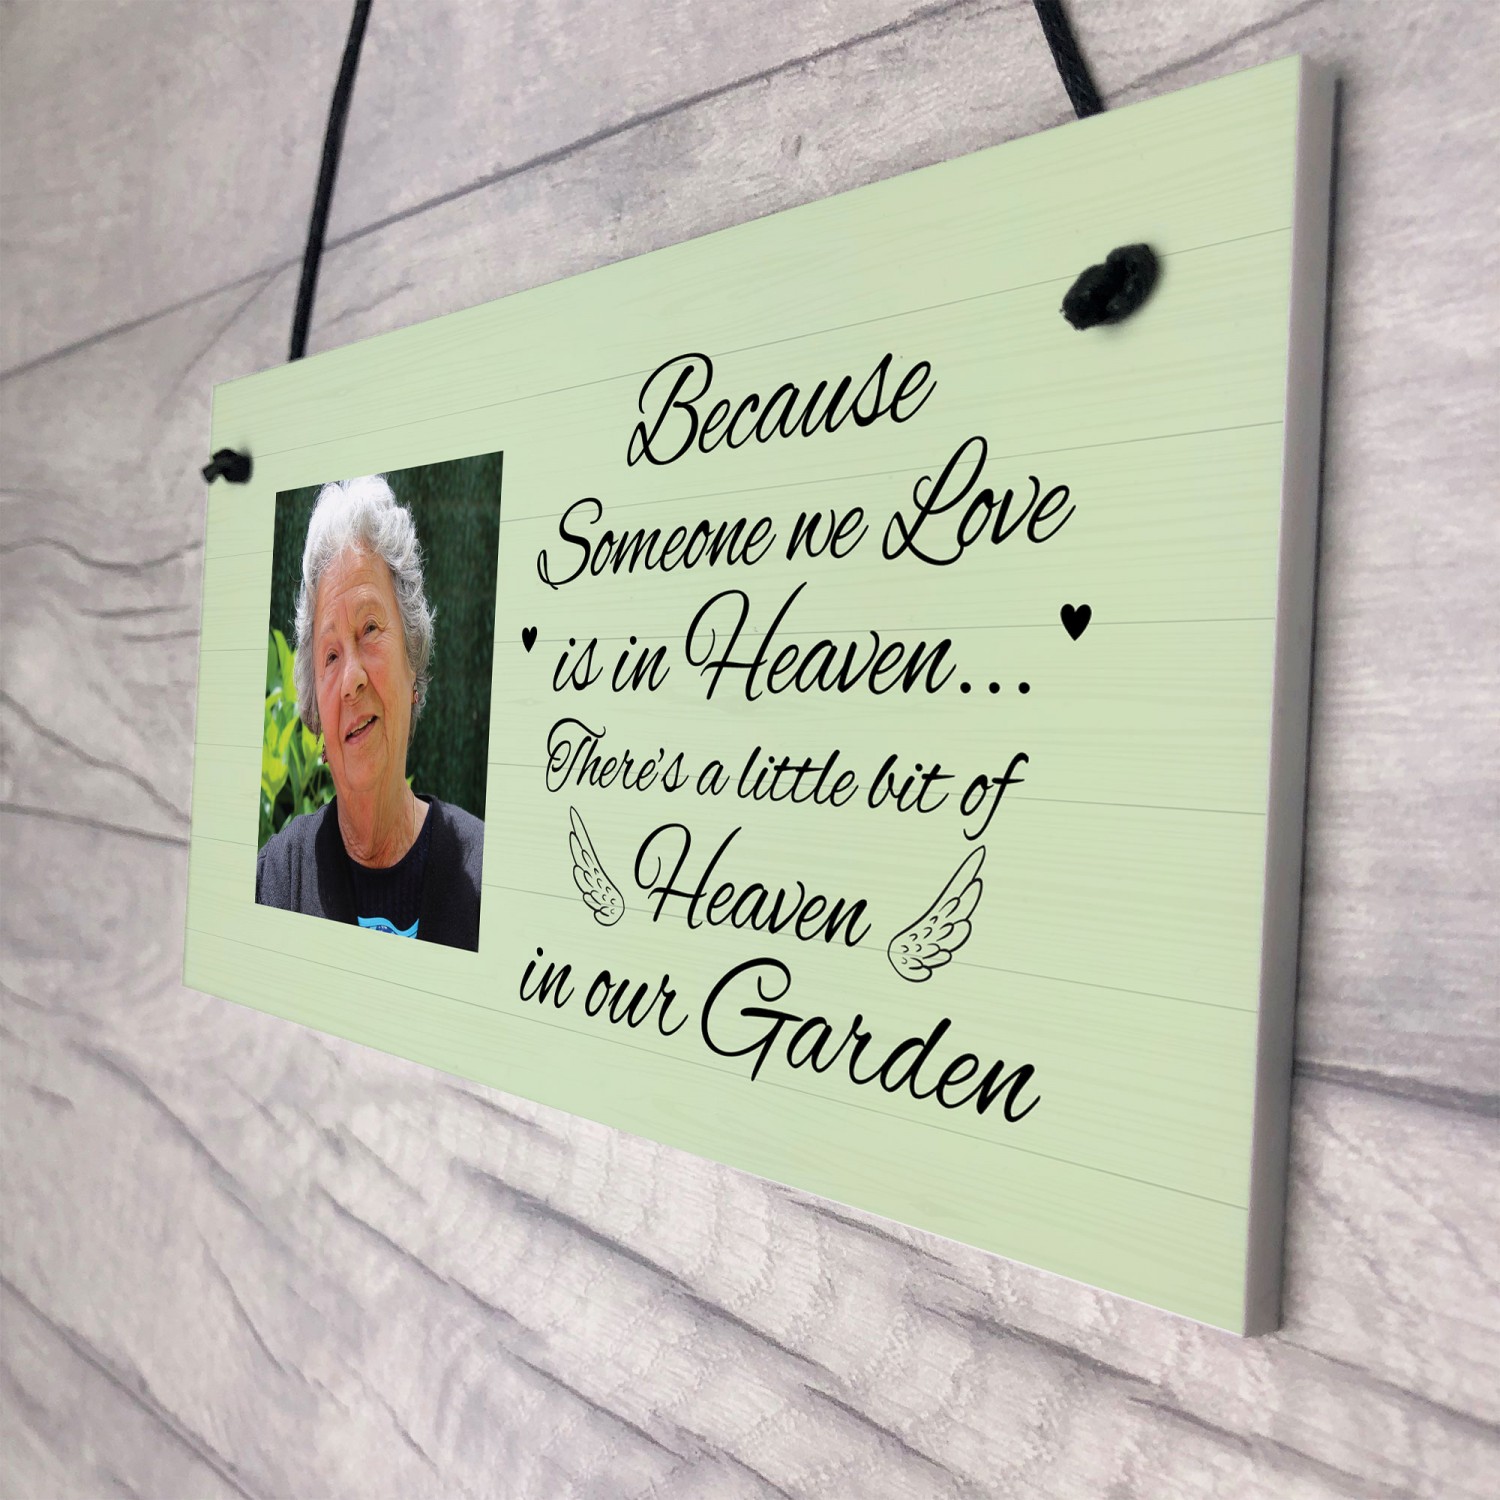 Because
Someone we Love
is in Heaven...
There's a little bit of
Heaven
in our Garden